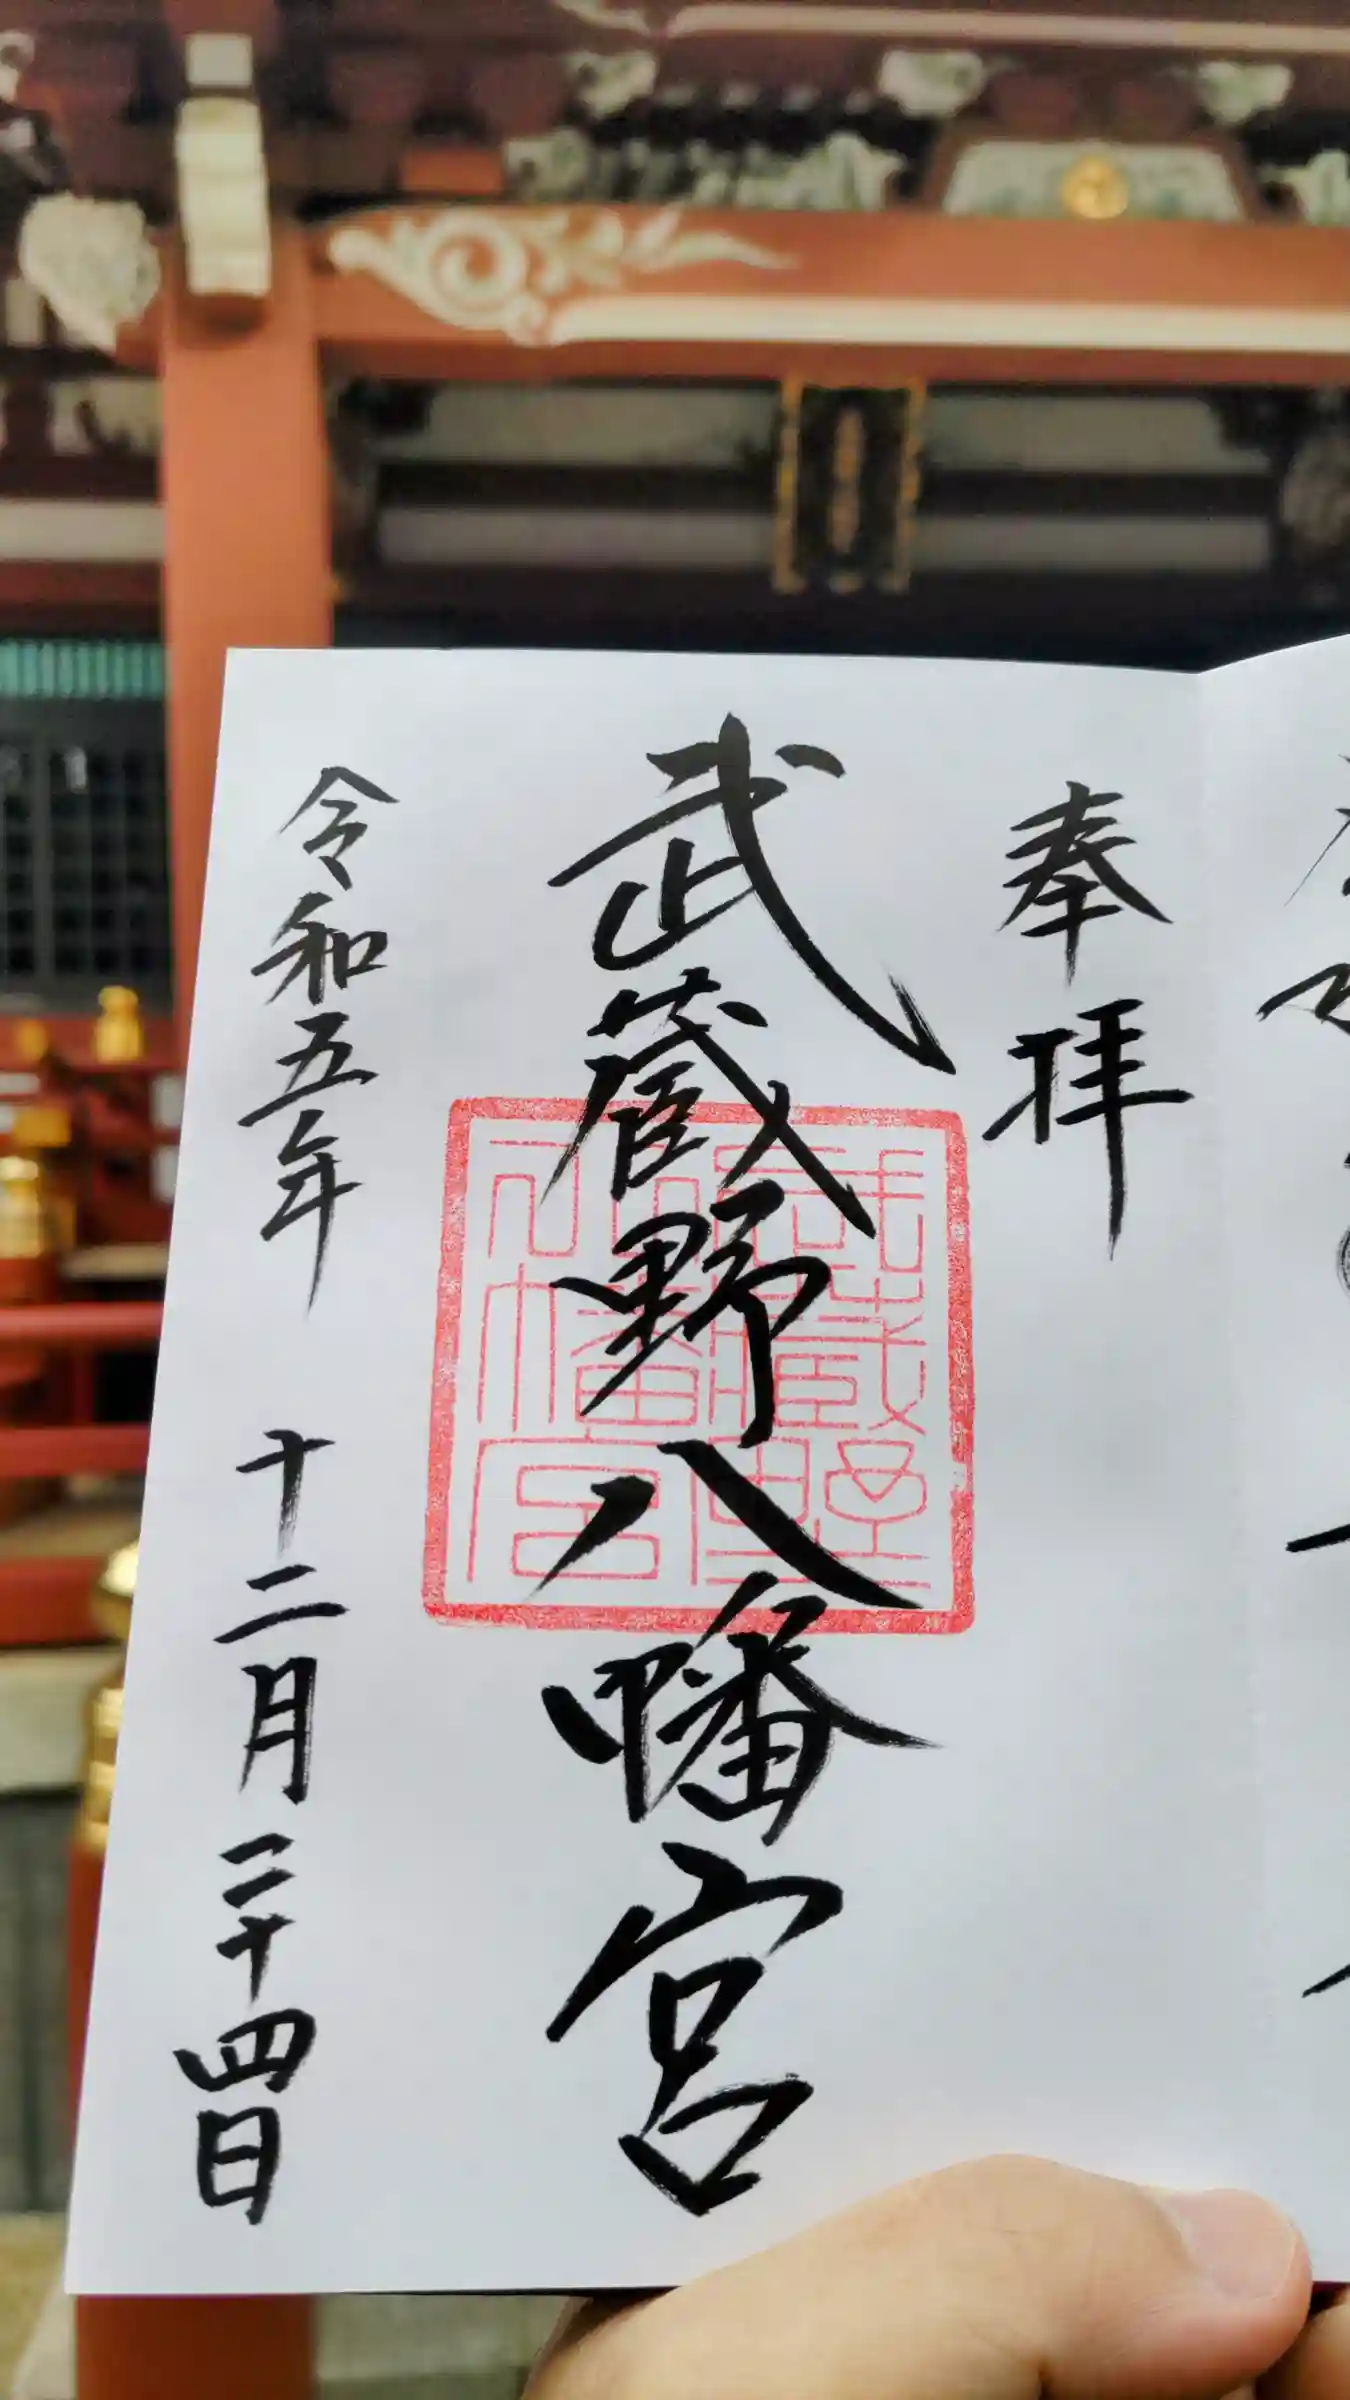 奉拝
武蔵野八幡宮
武蔵野
八幡宮
令和五年 十二月二十四日